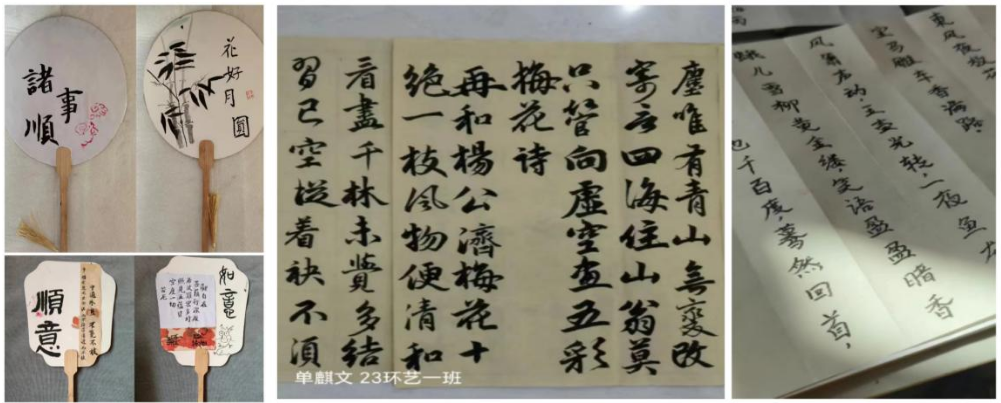 諸事順
花好月圓
順意
如意
塵唯有青山無變改
寄言四海住山翁莫
只管向虛空畫五彩
梅花詩
再和楊公濟梅花十
絕一枝風物便清和
看盡千林未覺多結
習已空從着袂不須
单麒文 23环艺一班
東风夜放花
宝马雕车香满路。
风箫声动,玉壶光转,一夜鱼龙
蛾儿雪柳黄金缕,笑语盈盈暗香
千百度,蓦然回首,